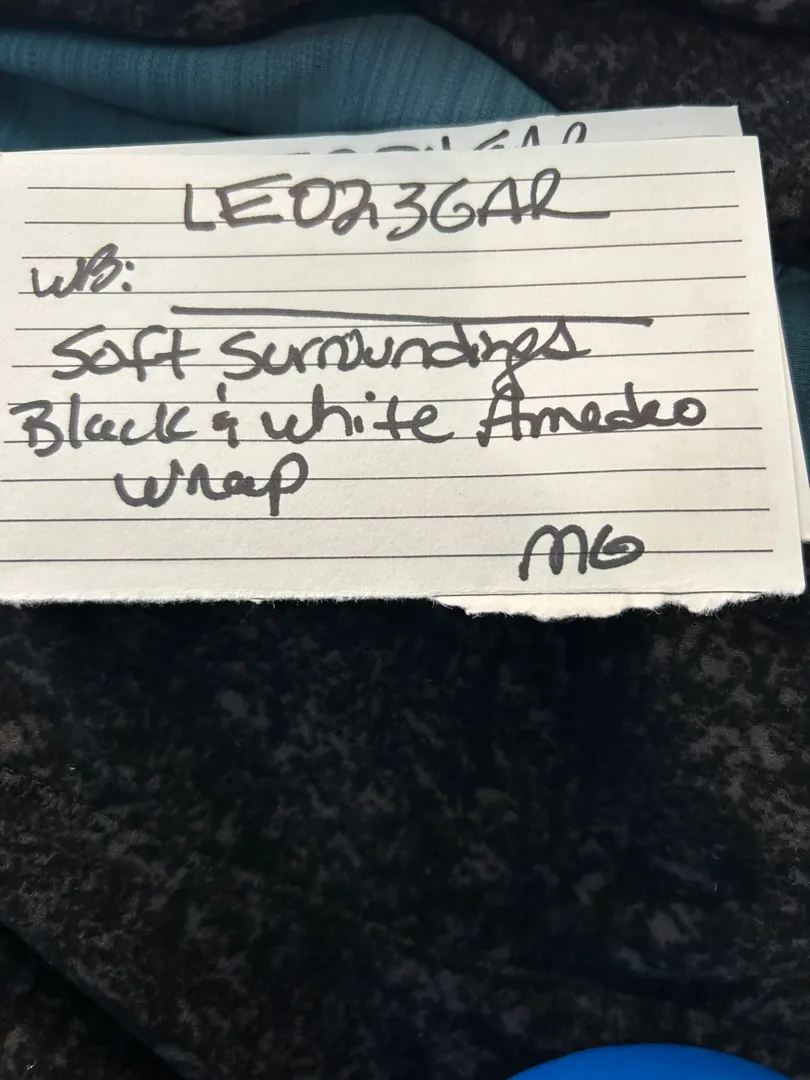 LE023GAR
WB:
Soft Surroundings
Black & white Amadeo
wrap
MG